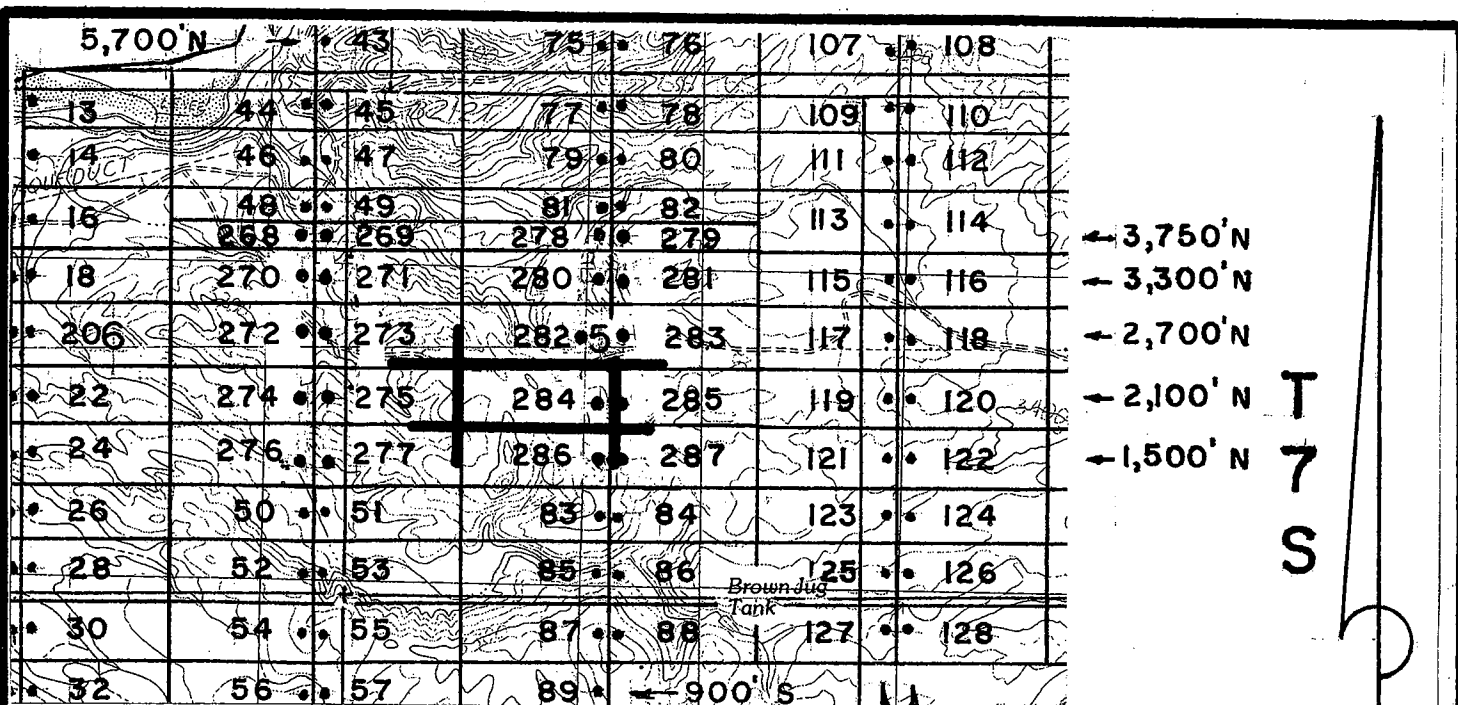 5,700'N 43 75 76 107 108
13 44 45 77 78 109 110
14 46 47 79 80 111 112
16 48 49 81 82 113 114
268 269 278 279 ←3,750'N
18 270 271 280 281 115 116 ←3,300'N
206 272 273 282 5 283 117 118 ←2,700'N
22 274 275 284 285 119 120 ←2,100' N T
24 276 277 286 287 121 122 ←1,500' N 7
26 50 51 83 84 123 124
28 52 53 85 86 125 126 S
Brown Jug
Tank
30 54 55 87 88 127 128
32 56 57 89 ←900' S